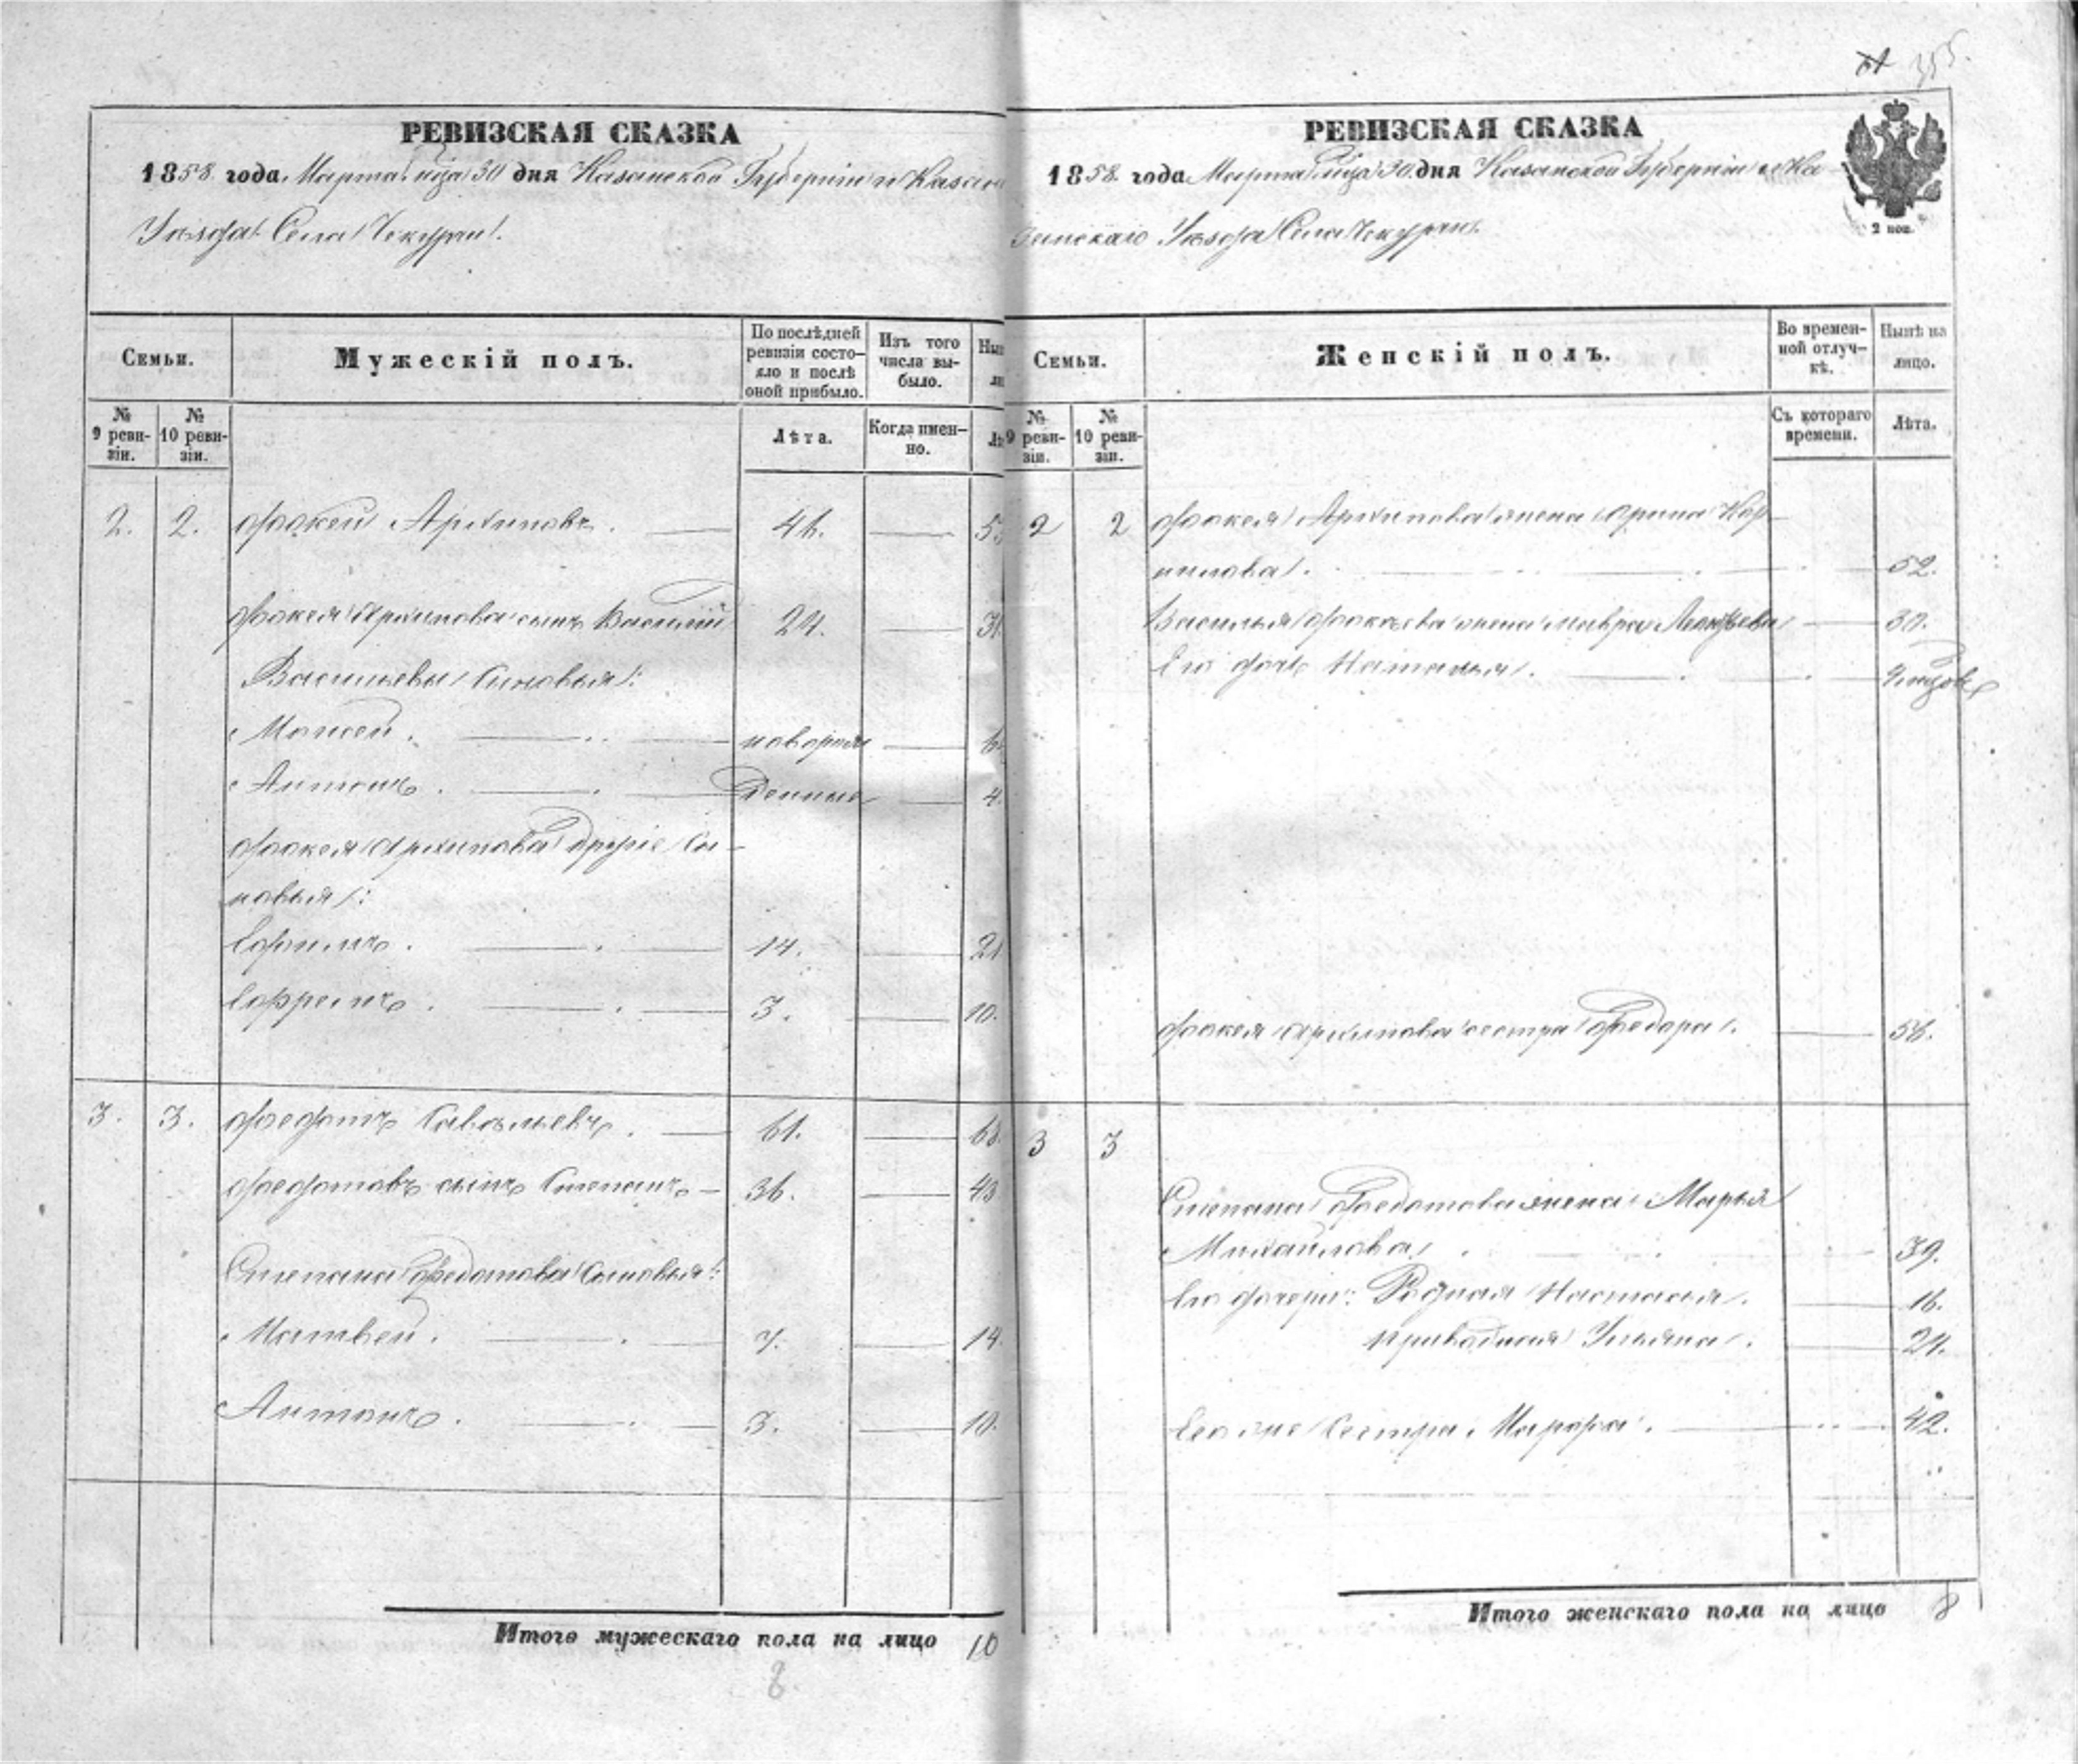 355.
РЕВИЗСКАЯ СКАЗКА
1858 года Марта м-ца 30 дня Казанской Губерніи и Казан
Уѣзда Села Чекурчи.
Семьи.
Мужескій полъ.
По послѣдней ревизіи состояло и послѣ оной прибыло.
Изъ того числа выбыло.
Нын
ли
№ 9 ревизіи.
№ 10 ревизіи.
Лѣта.
Когда именно.
Лѣ
2. 2. Фокей Архиповъ. 46. 53
Фокея Архипова сынъ Василій 24. 31
Васильевы Сыновья:
Мокей. новорож 6.
Антонъ. денные 4.
Фокея Архипова другіе Сы-
новья:
Ефимъ. 14. 21
Ефремъ. 3. 10.
3. 3. Федотъ Савельевъ. 61. 68
Федотовъ сынъ Степанъ 36. 43
Степана Федотова Сыновья:
Матвей. 7. 14.
Антонъ. 3. 10.
Итого мужескаго пола на лицо 10
8.
РЕВИЗСКАЯ СКАЗКА
1858 года Марта м-ца 30 дня Казанской Губерніи и Ка
занскаго Уѣзда Села Чекурчи.
2 коп.
Семьи.
Женскій полъ.
Во временной отлучкѣ.
Нынѣ на лицо.
№ 9 ревизіи.
№ 10 ревизіи.
Съ котораго времени.
Лѣта.
2 2 Фокея Архипова жена Арина Кор
нилова. 52.
Василья Фокѣева жена Мавра 30.
Его дочь Наталья.
Фокея Архипова сестра Федора. 56.
3 3
Степана Федотова жена Марья
Михайлова. 39.
Его дочери: Родная Настасья. 16.
приводная Ульяна. 21.
Его же Сестра Марфа. 42.
Итого женскаго пола на лицо 8